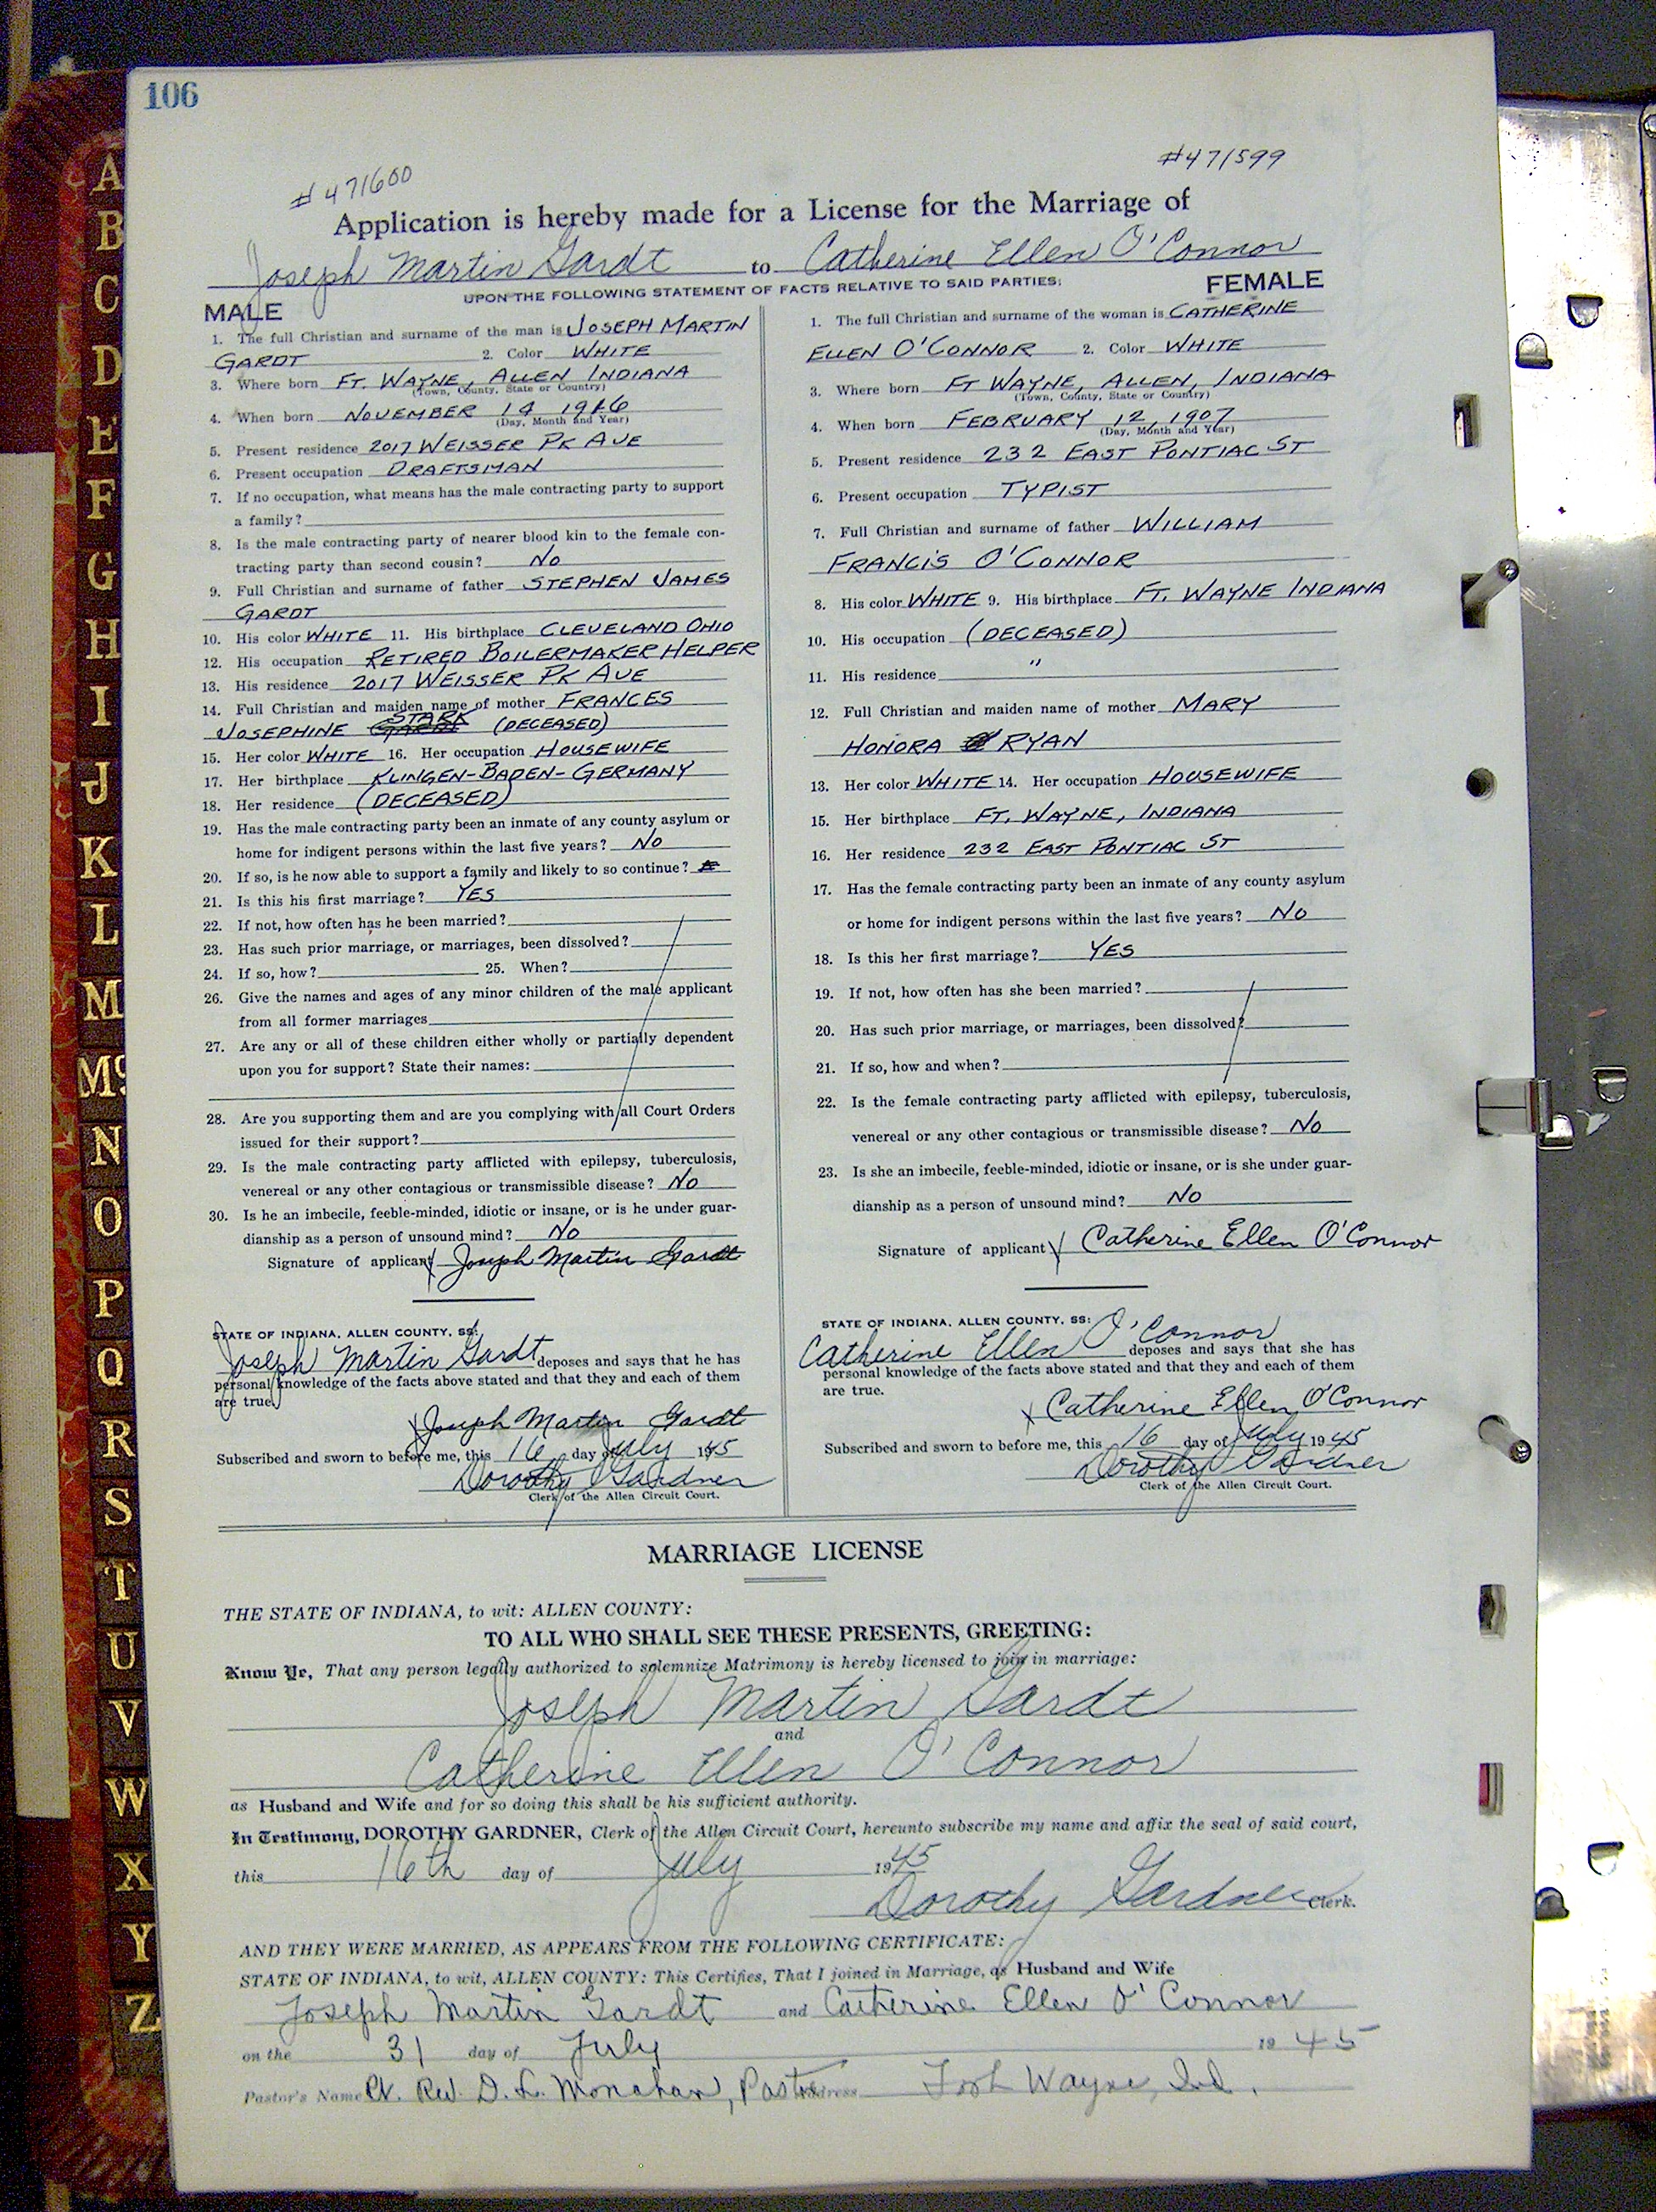 106
A
B
C
D
E
F
G
H
I
J
K
L
M
Mc
N
O
P
Q
R
S
T
U
V
W
X
Y
Z
# 471600
#471599
Application is hereby made for a License for the Marriage of
Joseph Martin Gardt to Catherine Ellen O'Connor
UPON THE FOLLOWING STATEMENT OF FACTS RELATIVE TO SAID PARTIES:
MALE
1. The full Christian and surname of the man is JOSEPH MARTIN
GARDT 2. Color WHITE
3. Where born FT. WAYNE, ALLEN INDIANA
(Town, County, State or Country)
4. When born NOVEMBER 14
(Day, Month and Year)
5. Present residence 2017 WEISSER PK AVE
6. Present occupation DRAFTSMAN
7. If no occupation, what means has the male contracting party to support
a family?
8. Is the male contracting party of nearer blood kin to the female con-
tracting party than second cousin? NO
9. Full Christian and surname of father STEPHEN JAMES
GARDT
10. His color WHITE 11. His birthplace CLEVELAND OHIO
12. His occupation RETIRED BOILERMAKER HELPER
13. His residence 2017 WEISSER PK AVE
14. Full Christian and maiden name of mother FRANCES
JOSEPHINE STARK (DECEASED)
15. Her color WHITE 16. Her occupation HOUSEWIFE
17. Her birthplace KLINGEN-BADEN-GERMANY
18. Her residence (DECEASED)
19. Has the male contracting party been an inmate of any county asylum or
home for indigent persons within the last five years? NO
20. If so, is he now able to support a family and likely to so continue?
21. Is this his first marriage? YES
22. If not, how often has he been married?
23. Has such prior marriage, or marriages, been dissolved?
24. If so, how? 25. When?
26. Give the names and ages of any minor children of the male applicant
from all former marriages
27. Are any or all of these children either wholly or partially dependent
upon you for support? State their names:
28. Are you supporting them and are you complying with all Court Orders
issued for their support?
29. Is the male contracting party afflicted with epilepsy, tuberculosis,
venereal or any other contagious or transmissible disease? NO
30. Is he an imbecile, feeble-minded, idiotic or insane, or is he under guar-
dianship as a person of unsound mind? NO
Signature of applicant X Joseph Martin Gardt
STATE OF INDIANA, ALLEN COUNTY, SS:
Joseph Martin Gardt deposes and says that he has
personal knowledge of the facts above stated and that they and each of them
are true.
X Joseph Martin Gardt
Subscribed and sworn to before me, this 16 day of July 1945
Dorothy Gardner
Clerk of the Allen Circuit Court.
FEMALE
1. The full Christian and surname of the woman is CATHERINE
ELLEN O'CONNOR 2. Color WHITE
3. Where born FT WAYNE, ALLEN, INDIANA
(Town, County, State or Country)
4. When born FEBRUARY 12, 1907
(Day, Month and Year)
5. Present residence 232 EAST PONTIAC ST
6. Present occupation TYPIST
7. Full Christian and surname of father WILLIAM
FRANCIS O'CONNOR
8. His color WHITE 9. His birthplace FT. WAYNE INDIANA
10. His occupation (DECEASED)
11. His residence "
12. Full Christian and maiden name of mother MARY
HONORA RYAN
13. Her color WHITE 14. Her occupation HOUSEWIFE
15. Her birthplace FT. WAYNE, INDIANA
16. Her residence 232 EAST PONTIAC ST
17. Has the female contracting party been an inmate of any county asylum
or home for indigent persons within the last five years? NO
18. Is this her first marriage? YES
19. If not, how often has she been married?
20. Has such prior marriage, or marriages, been dissolved?
21. If so, how and when?
22. Is the female contracting party afflicted with epilepsy, tuberculosis,
venereal or any other contagious or transmissible disease? NO
23. Is she an imbecile, feeble-minded, idiotic or insane, or is she under guar-
dianship as a person of unsound mind? NO
Signature of applicant X Catherine Ellen O'Connor
STATE OF INDIANA, ALLEN COUNTY, SS:
Catherine Ellen O'Connor deposes and says that she has
personal knowledge of the facts above stated and that they and each of them
are true.
X Catherine Ellen O'Connor
Subscribed and sworn to before me, this 16 day of July 1945
Dorothy Gardner
Clerk of the Allen Circuit Court.
MARRIAGE LICENSE
THE STATE OF INDIANA, to wit: ALLEN COUNTY:
TO ALL WHO SHALL SEE THESE PRESENTS, GREETING:
Know Ye, That any person legally authorized to solemnize Matrimony is hereby licensed to join in marriage:
Joseph Martin Gardt
and
Catherine Ellen O'Connor
as Husband and Wife and for so doing this shall be his sufficient authority.
In Testimony, DOROTHY GARDNER, Clerk of the Allen Circuit Court, hereunto subscribe my name and affix the seal of said court,
this 16th day of July 1945
Dorothy Gardner Clerk.
AND THEY WERE MARRIED, AS APPEARS FROM THE FOLLOWING CERTIFICATE:
STATE OF INDIANA, to wit, ALLEN COUNTY: This Certifies, That I joined in Marriage, as Husband and Wife
Joseph Martin Gardt and Catherine Ellen O'Connor
on the 31 day of July 1945
Pastor's Name Rt. Rev. D. L. Monahan, Pastor Address Fort Wayne, Ind.